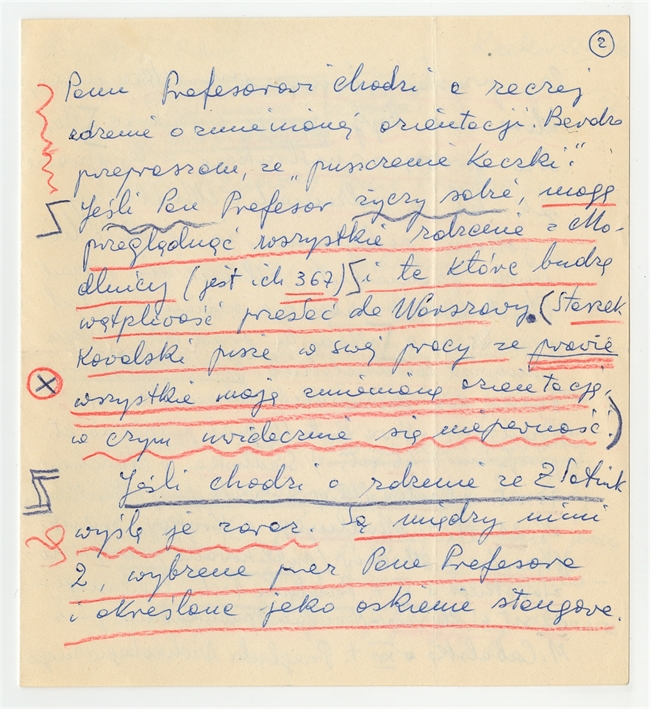 2
Panu Profesorowi chodzi o raczej
zdrenie o zmienionej orientacji. Bardzo
przepraszam, ze "puszczenie Kaczki".
Jeśli Pan Profesor życzy sobie, mogę
przeglądnąć wszystkie zdrzenie z Mo-
dlnicy (jest ich 367) i te które budzą
wątpliwość przesłać do Warszawy. (Staszek
Kowalski pisze w swej pracy ze prawie
wszystkie mają zmienioną orientację,
w czym uwidacznie się niepewność.)
Jeśli chodzi o zdrenie ze Złotnik
wyślę je zaraz. Są między nimi
2, wybrane przez Pana Profesora
i określone jako oskienie stangove.